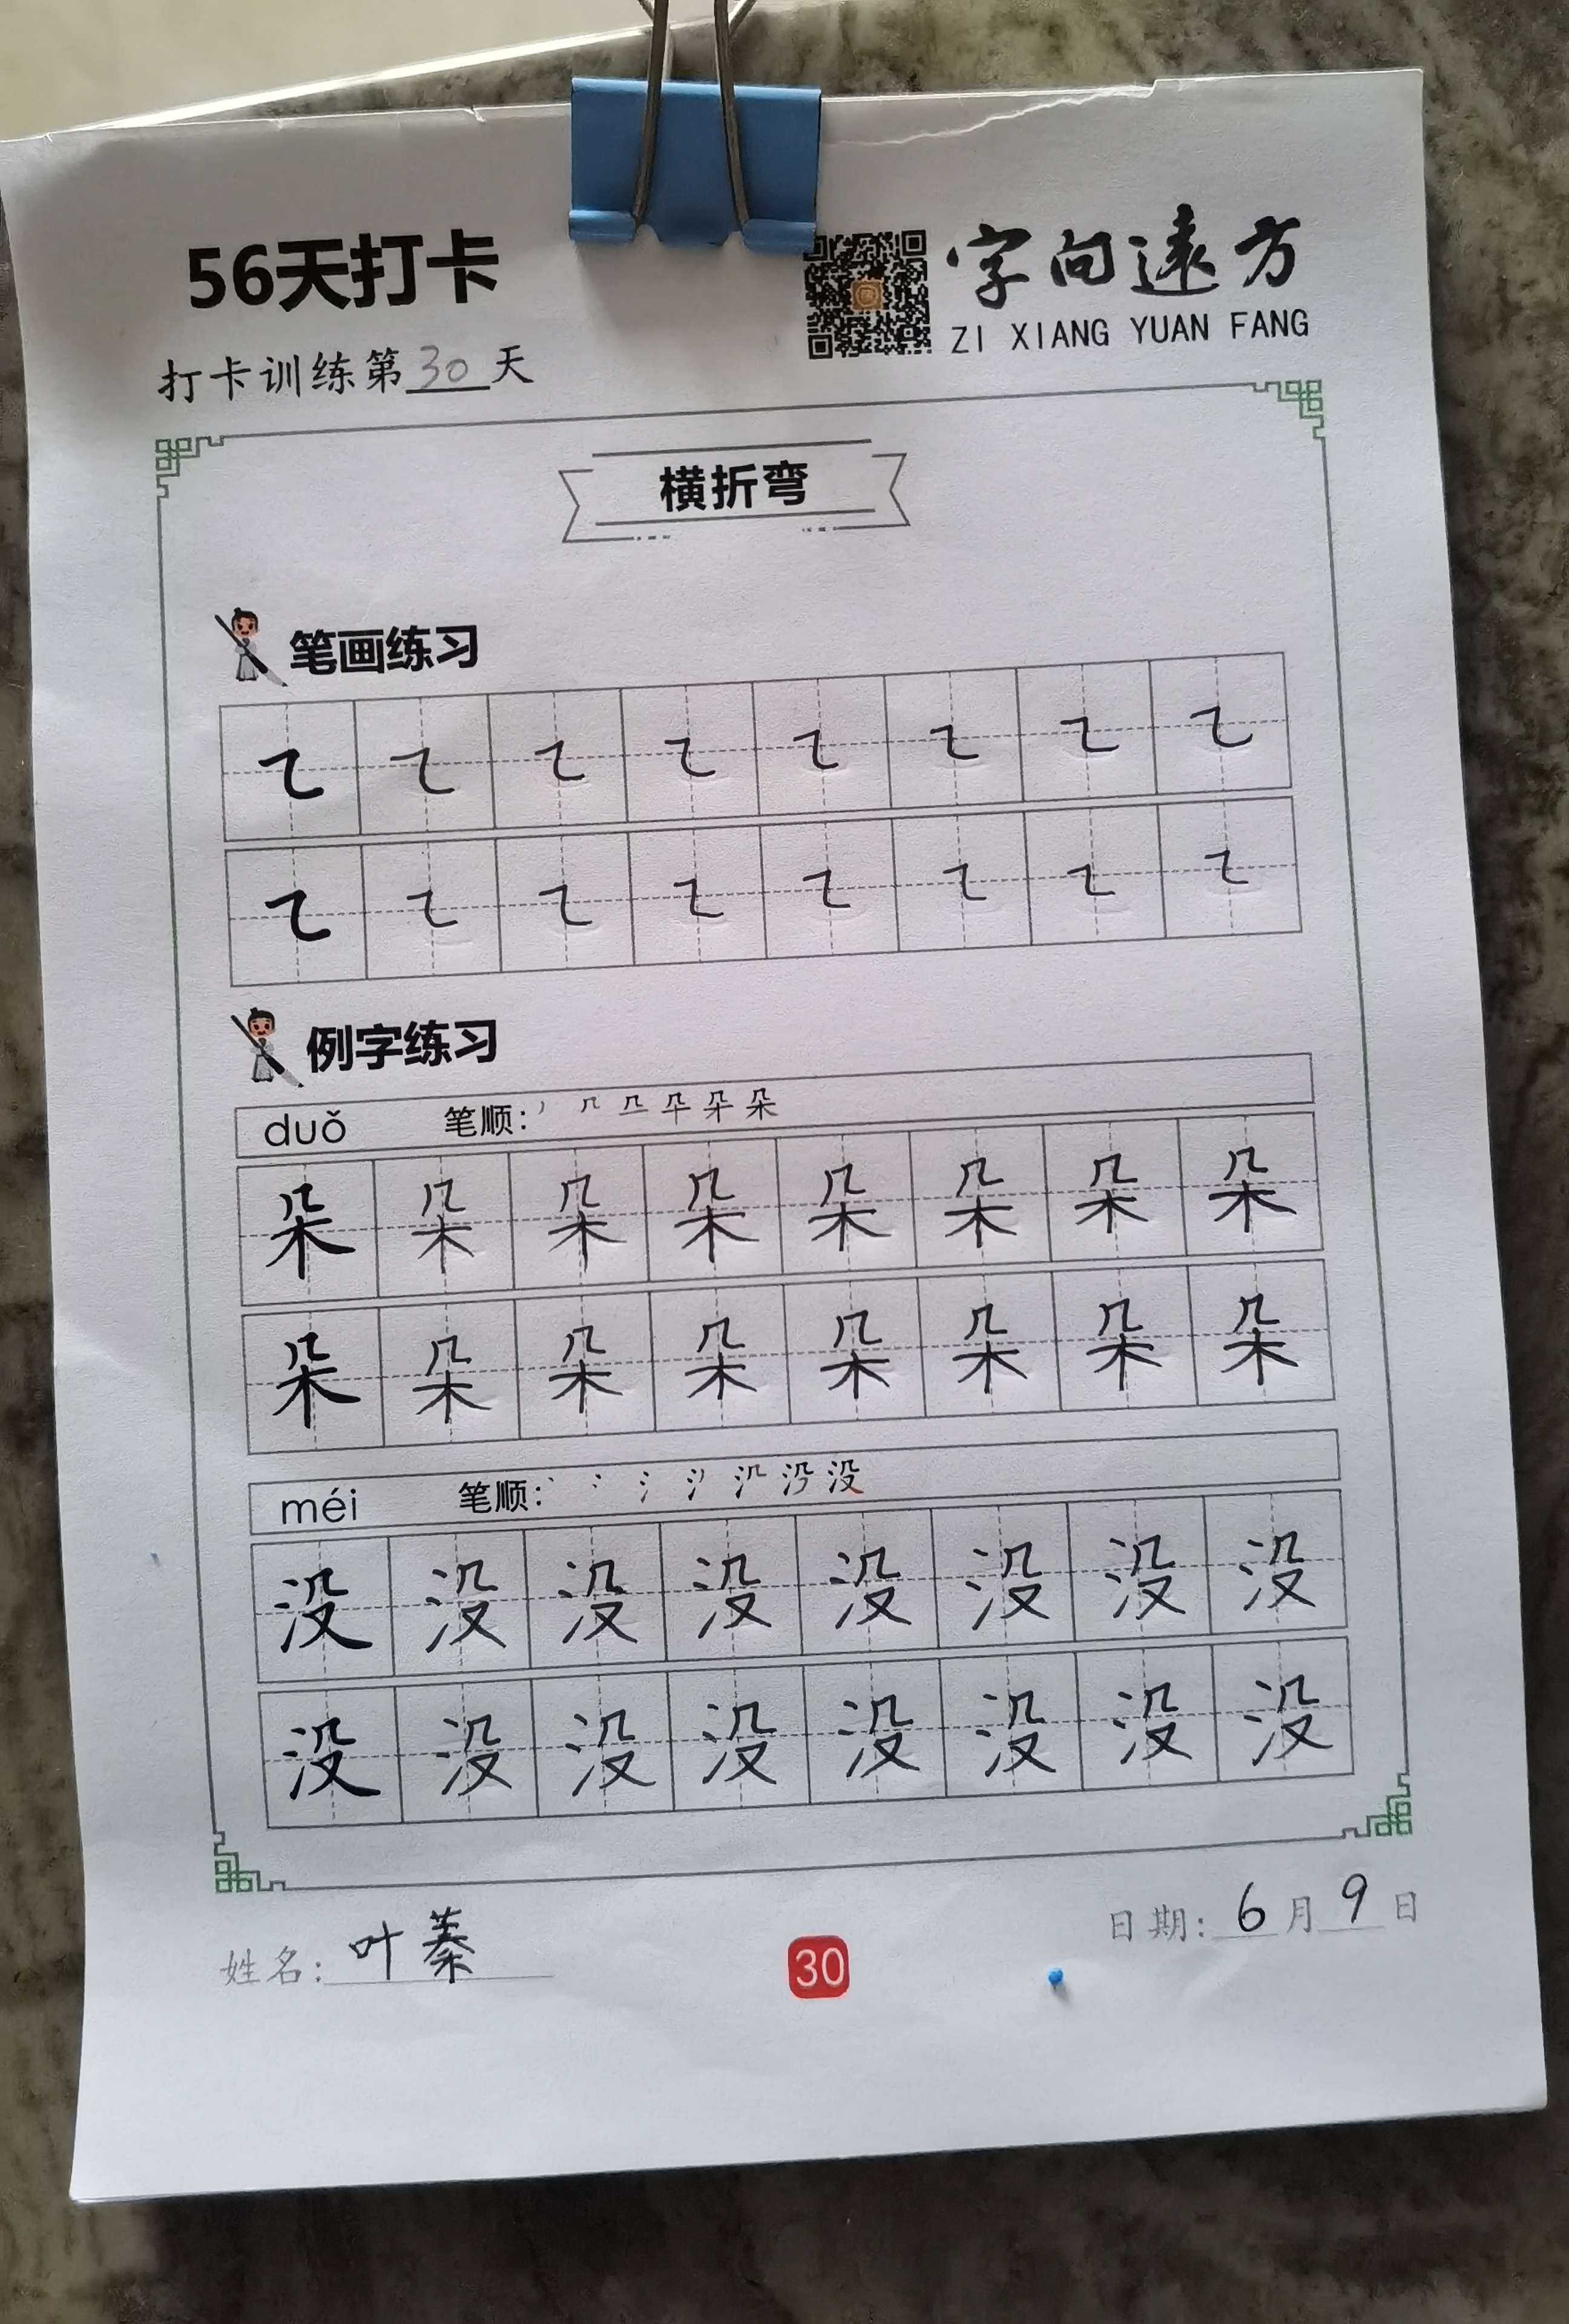 56天打卡
字向遠方
ZI XIANG YUAN FANG
打卡训练第30天
横折弯
笔画练习
例字练习
duǒ 笔顺:
朵 朵 朵 朵 朵 朵 朵 朵
朵 朵 朵 朵 朵 朵 朵 朵
méi 笔顺:
没 没 没 没 没 没 没 没
没 没 没 没 没 没 没 没
姓名: 叶蓁
30
日期: 6月9日